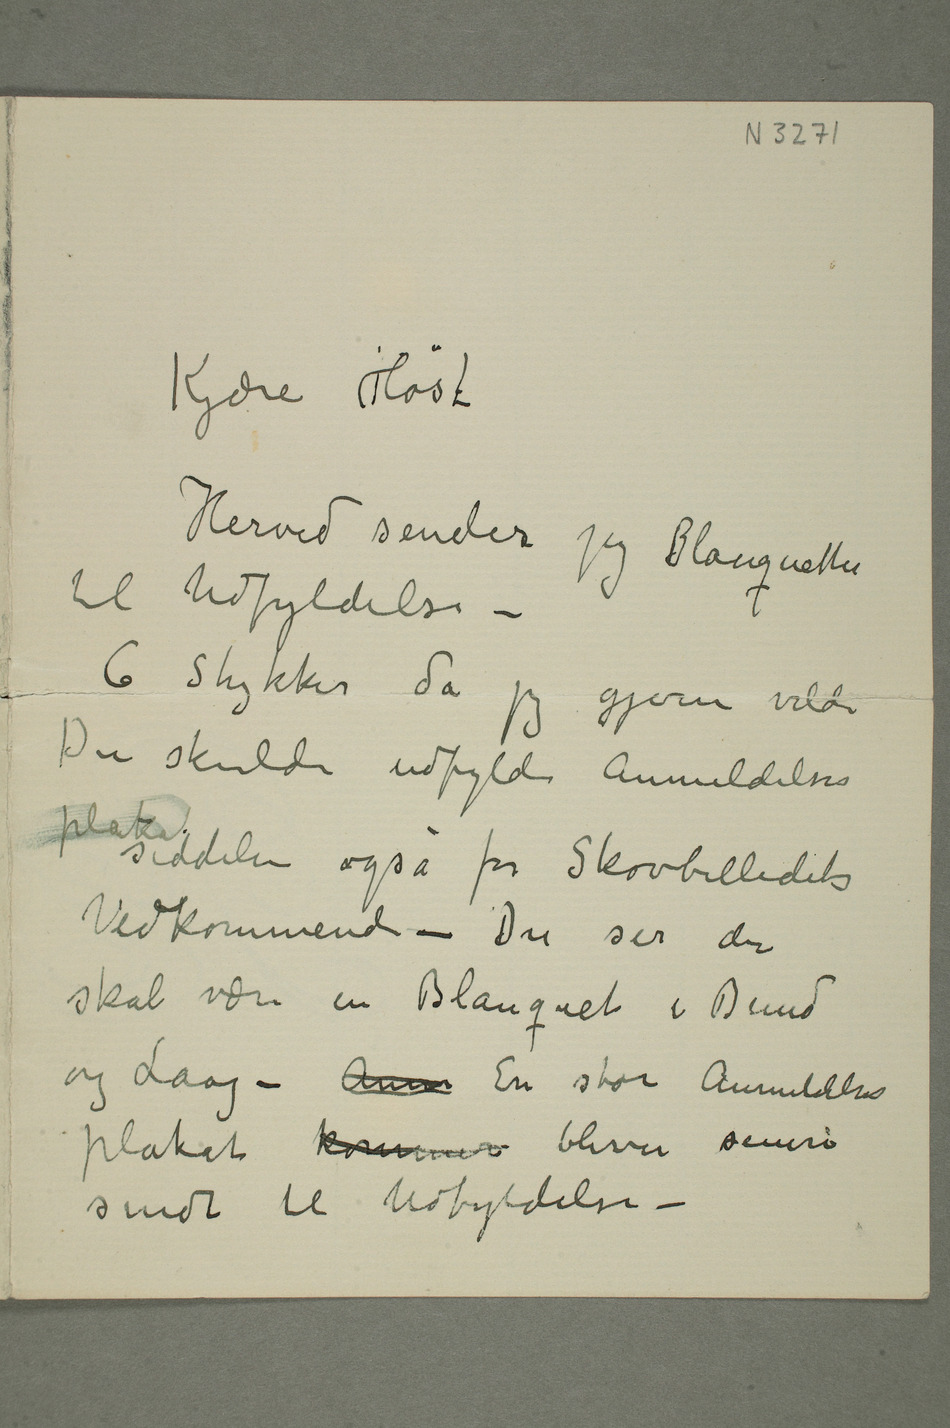 N 3271
Kjære Høst
Herved sender jeg Blanquetter
til Udfyldelse –
6 Stykker da jeg gjerne vilde
Du skulde udfylde Anmeldelses
plaka
seddelen også for Skovbilledets
Vedkommende – Du ser der
skal være en Blanquet i Bund
og Laag – Anm En stor Anmeldelses
plakat kommer bliver senere
sendt til Udfyldelse –